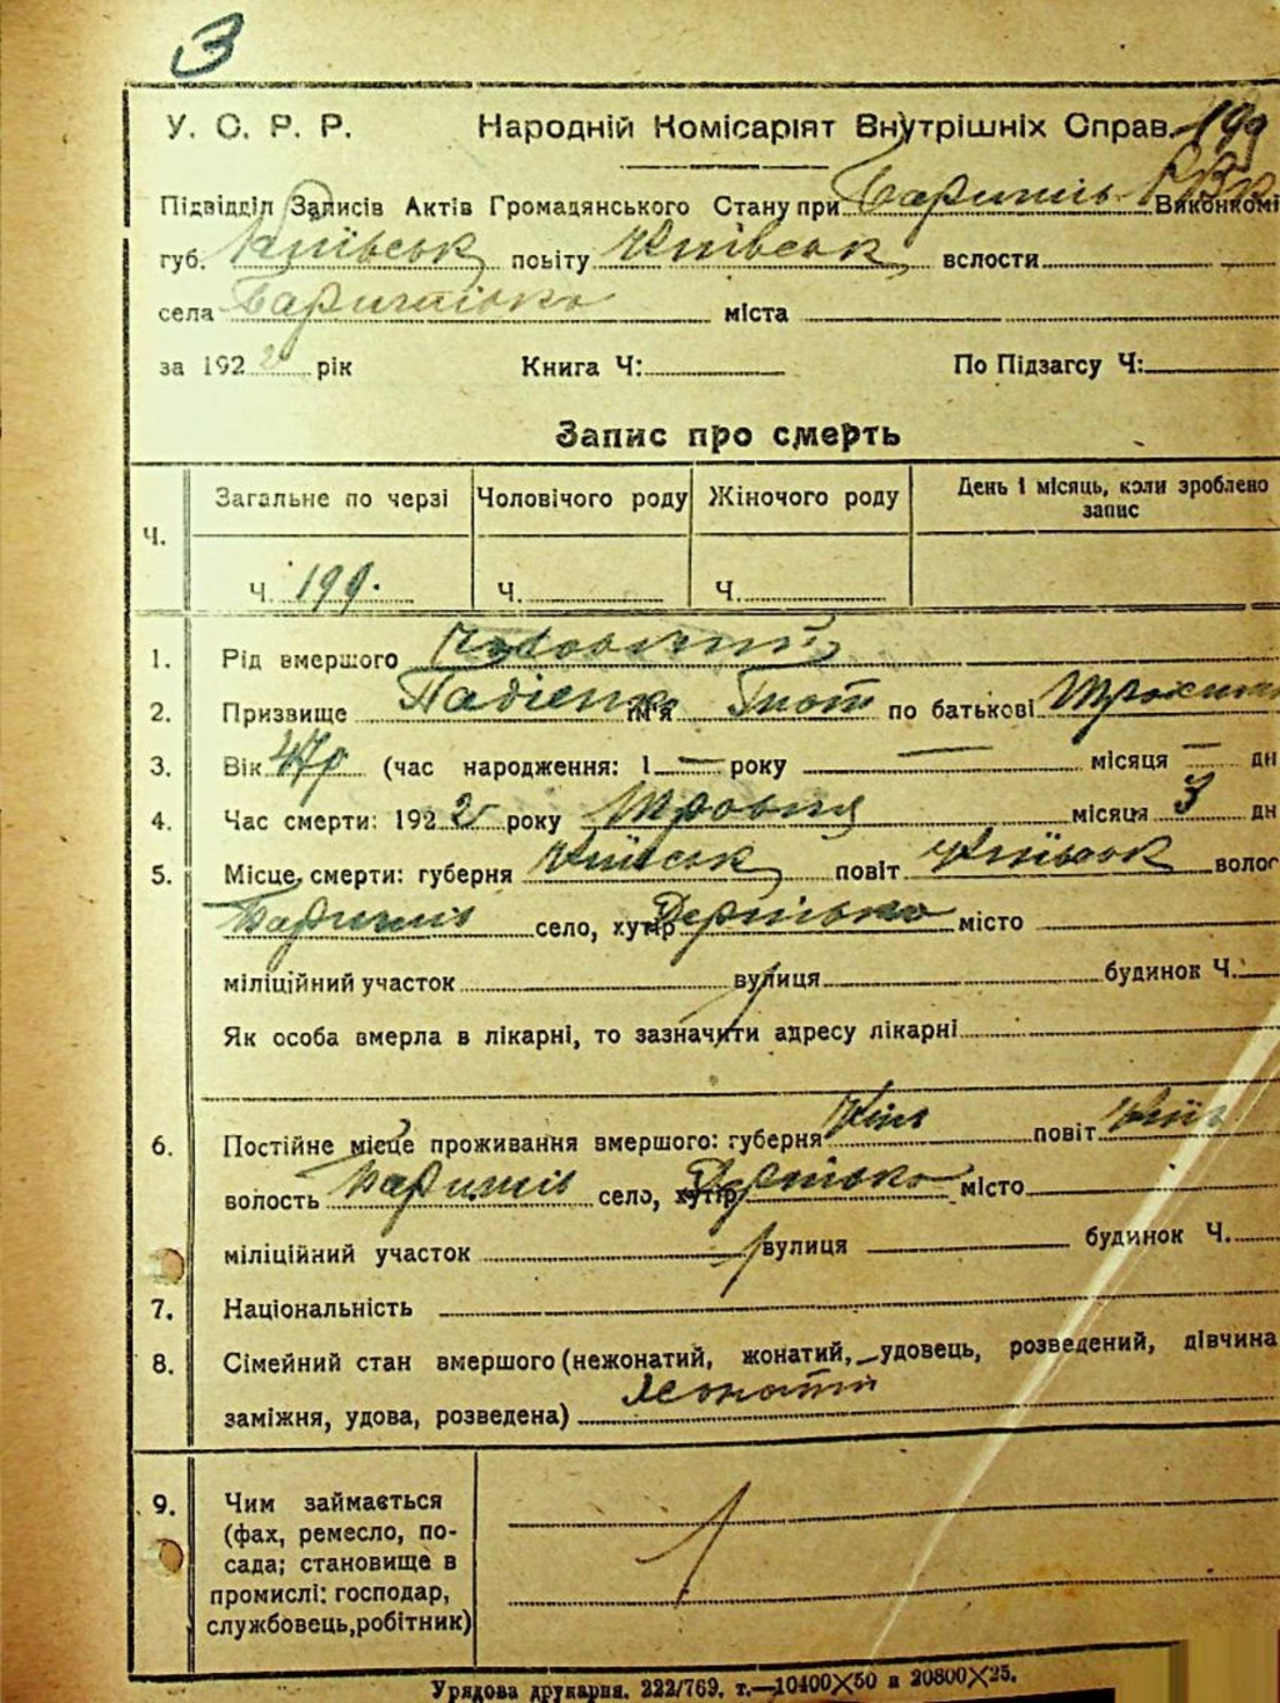 3
У. С. Р. Р. Народній Комісаріят Внутрішніх Справ. 199
Підвідділ Записів Актів Громадянського Стану при Баришів РВК Виконкомі
губ. Київськ повіту Київськ вслости
села Баришівка міста
за 1922 рік Книга Ч: По Підзагсу Ч:
Запис про смерть
Ч. Загальне по черзі Чоловічого роду Жіночого роду День і місяць, коли зроблено
запис
Ч. 199. Ч. Ч.
1. Рід вмершого Чоловічий
2. Призвище імʼя Гнат по батькові
3. Вік 47р (час народження: 1 — року — місяця — дн
4. Час смерти: 1922 року Травня місяця 3 дн
5. Місце смерти: губерня Київськ повіт Київськ волос
Баришів село, хутір Дернівка місто
міліційний участок вулиця будинок Ч.
Як особа вмерла в лікарні, то зазначити адресу лікарні
6. Постійне місце проживання вмершого: губерня Київ повіт Київ
волость Баришів село, хутір Дернівка місто
міліційний участок вулиця будинок Ч.
7. Національність
8. Сімейний стан вмершого (нежонатий, жонатий, удовець, розведений, дівчина
заміжня, удова, розведена) жонатий
9. Чим займається
(фах, ремесло, по-
сада; становище в
промислі: господар,
службовець, робітник)
Урядова друкарня. 222/769. т.—10400×50 и 20800×25.